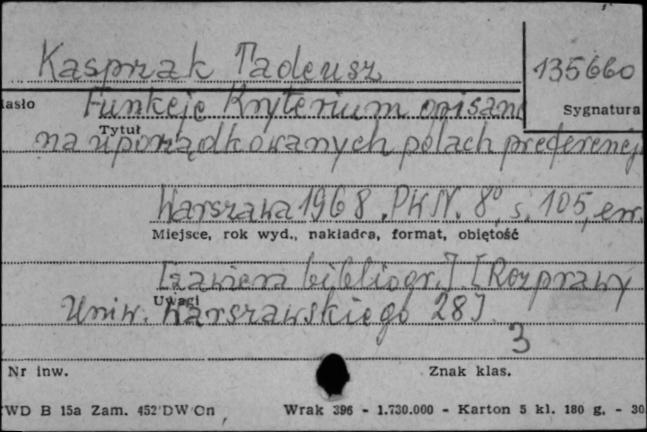 Kasprzak Tadeusz
135660
asło
Sygnatura
Funkcje Kryterium opisane
Tytuł
na uporządkowanych polach preferencji
Warszawa 1968. PWN. 8º, s. 105, err.
Miejsce, rok wyd., nakładca, format, objętość
[zawiera bibliogr.] [Rozprawy
Uwagi
Uniw. Warszawskiego 28]
3
Nr inw.
Znak klas.
WD B 15a Zam. 452 DW Cn Wrak 396 - 1.730.000 - Karton 5 kl. 180 g. - 30